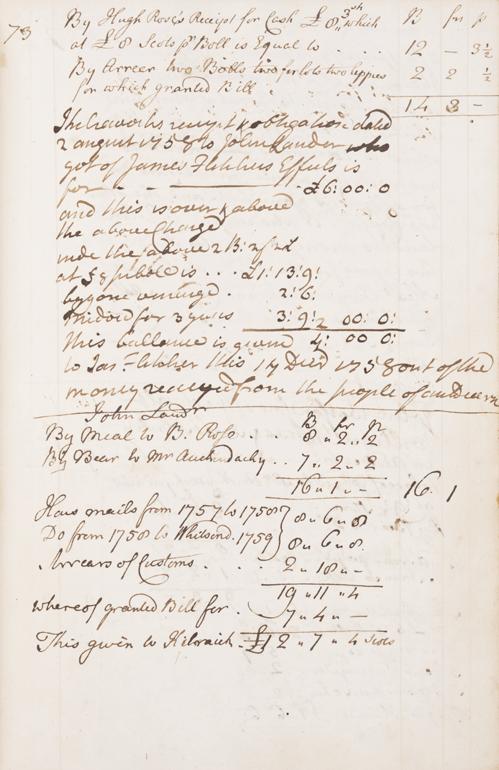 73
By Hugh Rose's Receipt for Cash £8 „ 3sh which B fr p
at £8 Scots pr Boll is Equal to . . . 12 – 3½
By Arreer two Bolls two firlots two lippies 2 2 ½
for which granted Bill 14 3 –
receipt & obligation dated
2 august 1758 to John Lauder who
got of James Fletchers Effects is
for – – £6: 00: 0
and this is over & above
the above Charge
the above 2 B: 2f 2L
at £8 pr bole is . . . £1: 13: 9:
bygone . 2: 6:
for 3 years 3: 9: 2 00: 0:
this ballance is given 4: 00 0:
to Jas: Fletcher this 14 Decr 1758 out of the
money receiv'd from the people of
John Laudr
B fr p
By Meal to B. Ross . . 8 „ 2 „ 2
By Bear to Mr Auchindachy . . 7 „ 2 „ 2
16 „ 1 „ – 16 1
Haus mails from 1757 to 1758 } 8 „ 6 „ 8
Do from 1758 to Whitsond. 1759 } 8 „ 6 „ 8
Arrears of Customs . . . 2 „ 18 „ –
19 „ 11 „ 4
whereof granted Bill for . 7 „ 4 „ –
This given to Kilraick – £12 „ 7 „ 4 Scots